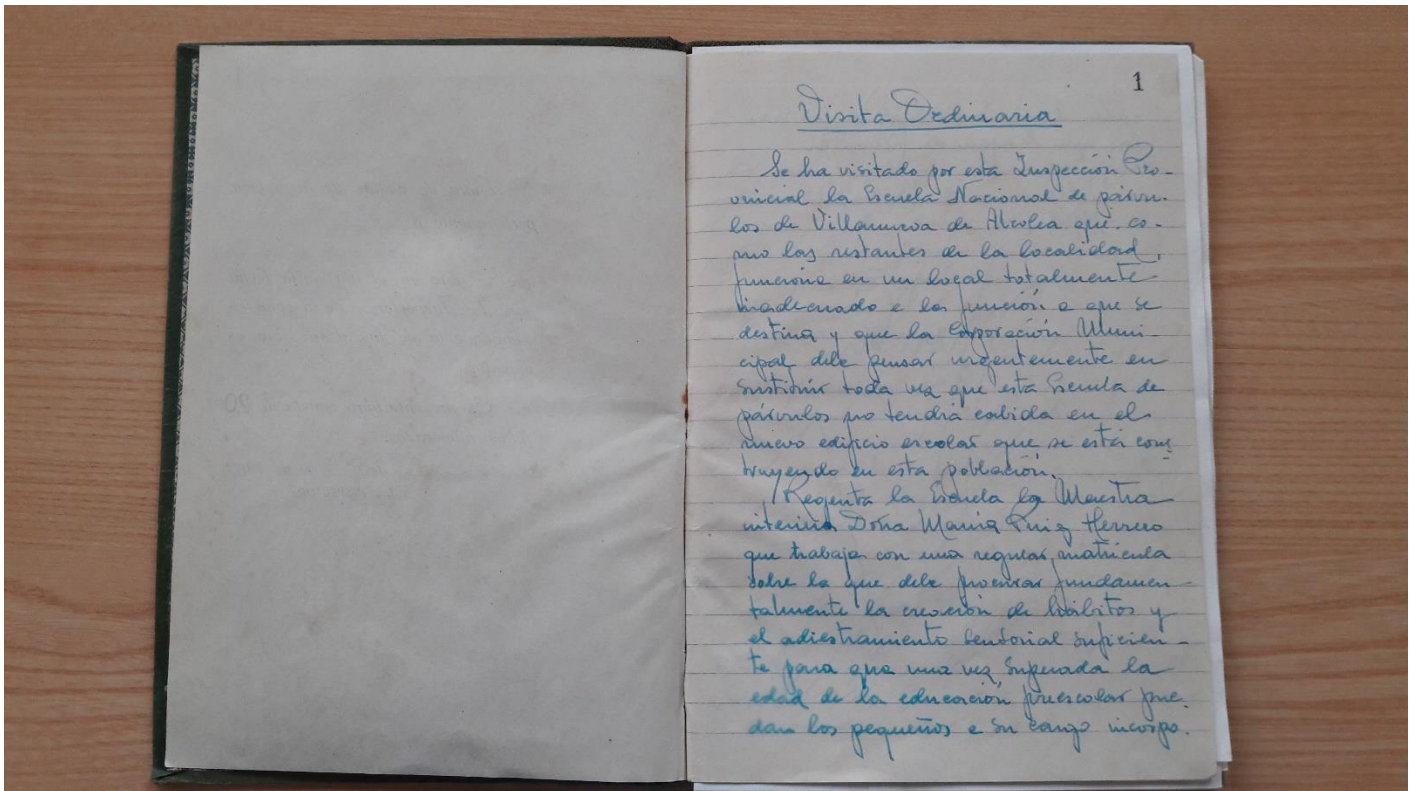 1
Visita Ordinaria
Se ha visitado por esta Inspección Pro-
vincial la Escuela Nacional de párvu-
los de Villanueva de Alcolea que, co-
mo las restantes de la localidad,
funciona en un local totalmente
inadecuado a la función a que se
destina y que la Corporación Muni-
cipal debe pensar urgentemente en
sustituir toda vez que esta Escuela de
párvulos no tendrá cabida en el
nuevo edificio escolar que se está cons
truyendo en esta población.
Regenta la Escuela la Maestra
interina Doña María Puig Herrero
que trabaja con una regular matrícula
sobre la que debe procurar fundamen-
talmente la creación de hábitos y
el adiestramiento sensorial suficien-
te para que una vez superada la
edad de la educación preescolar pue-
dan los pequeños a su cargo incorpo-